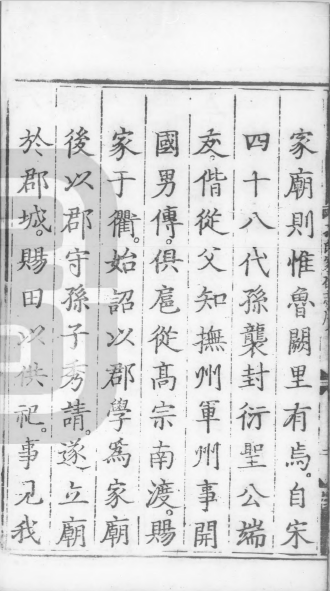 家廟則惟魯闕里有焉。自宋
四十八代孫襲封衍聖公端
友偕從父知撫州軍州事開
國男傳。俱扈從高宗南渡。賜
家于衢。始詔以郡學爲家廟
後以郡守孫子秀請。遂立廟
於郡城。賜田以供祀。事見我